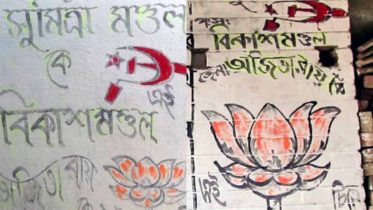 সুমিত্রা মণ্ডল
কে
এই
বিকাশ মণ্ডল
অজিতা রায়
বিকাশ মণ্ডল
জেলা অজিতা রায় কে
এই